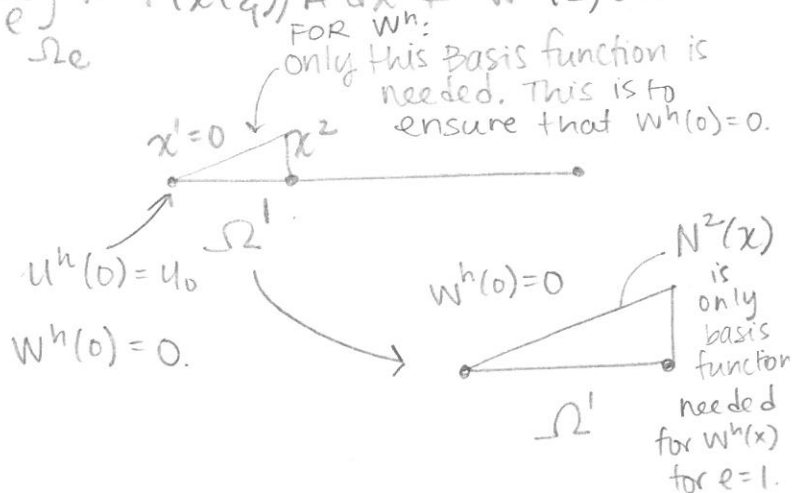 Ωe
FOR Wʰ:
only this Basis function is
needed. This is to
ensure that Wʰ(0)=0.
x¹=0
x²
Ω¹
uʰ(0)=u₀
Wʰ(0)=0.
Wʰ(0)=0
N²(x)
is
only
basis
function
needed
for Wʰ(x)
for e=1.
Ω¹